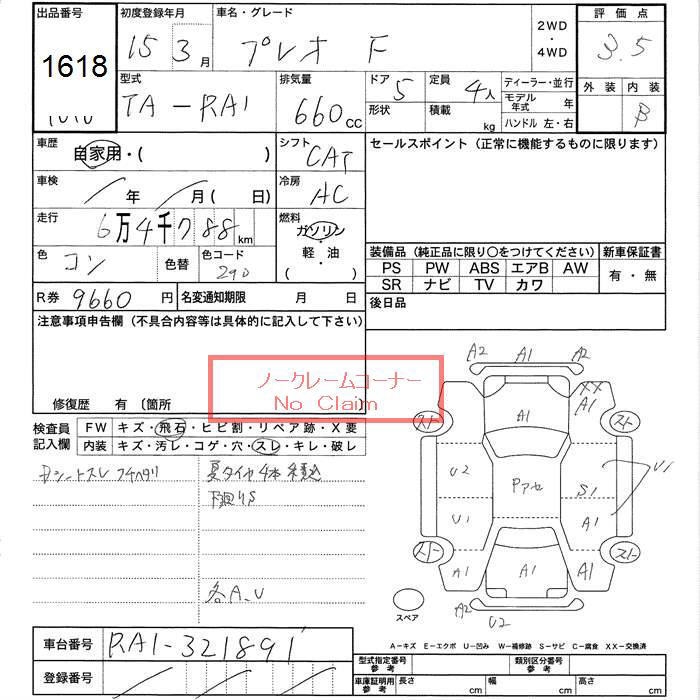 出品番号 初度登録年月 車名・グレード 2WD・4WD 評価点
1618 15 3月 プレオ F 3.5
型式 排気量 ドア 形状 定員 積載 kg ディーラー・並行 外装 内装
TA-RA1 660cc 5 4人 モデル年式 年 B
ハンドル 左・右
車歴 自家用・( ) シフト CAT セールスポイント(正常に機能するものに限ります)
車検 / 年 / 月( 日) 冷房 AC
走行 6万4千788km 燃料 ガソリン・軽・油( )
色 コン 色替 色コード 290
装備品(純正品に限り○をつけてください) 新車保証書
PS PW ABS エアB AW 有・無
SR ナビ TV カワ
R券 9660円 名変通知期限 月 日 後日品
注意事項申告欄(不具合内容等は具体的に記入して下さい)
ノークレームコーナー
No Claim
修復歴 有 〔箇所
検査員記入欄 FW キズ・飛石・ヒビ割・リペア跡・X要
内装 キズ・汚レ・コゲ・穴・スレ・キレ・破レ
夏タイヤ4本積込
下廻りS
各A、U
A2 A1 A2
XX
A1
スト A1 スト
U2 Pアセ S1 U1
U1 A1
スト スト
A1 A1 A1
スペア A2 U2
A-キズ E-エクボ U-凹み W-補修跡 S-サビ C-腐食 XX-交換済
車台番号 RA1-321891
型式指定番号 参考 類別区分番号 参考
登録番号 車庫証明用 参考 長さ cm 幅 cm 高さ cm